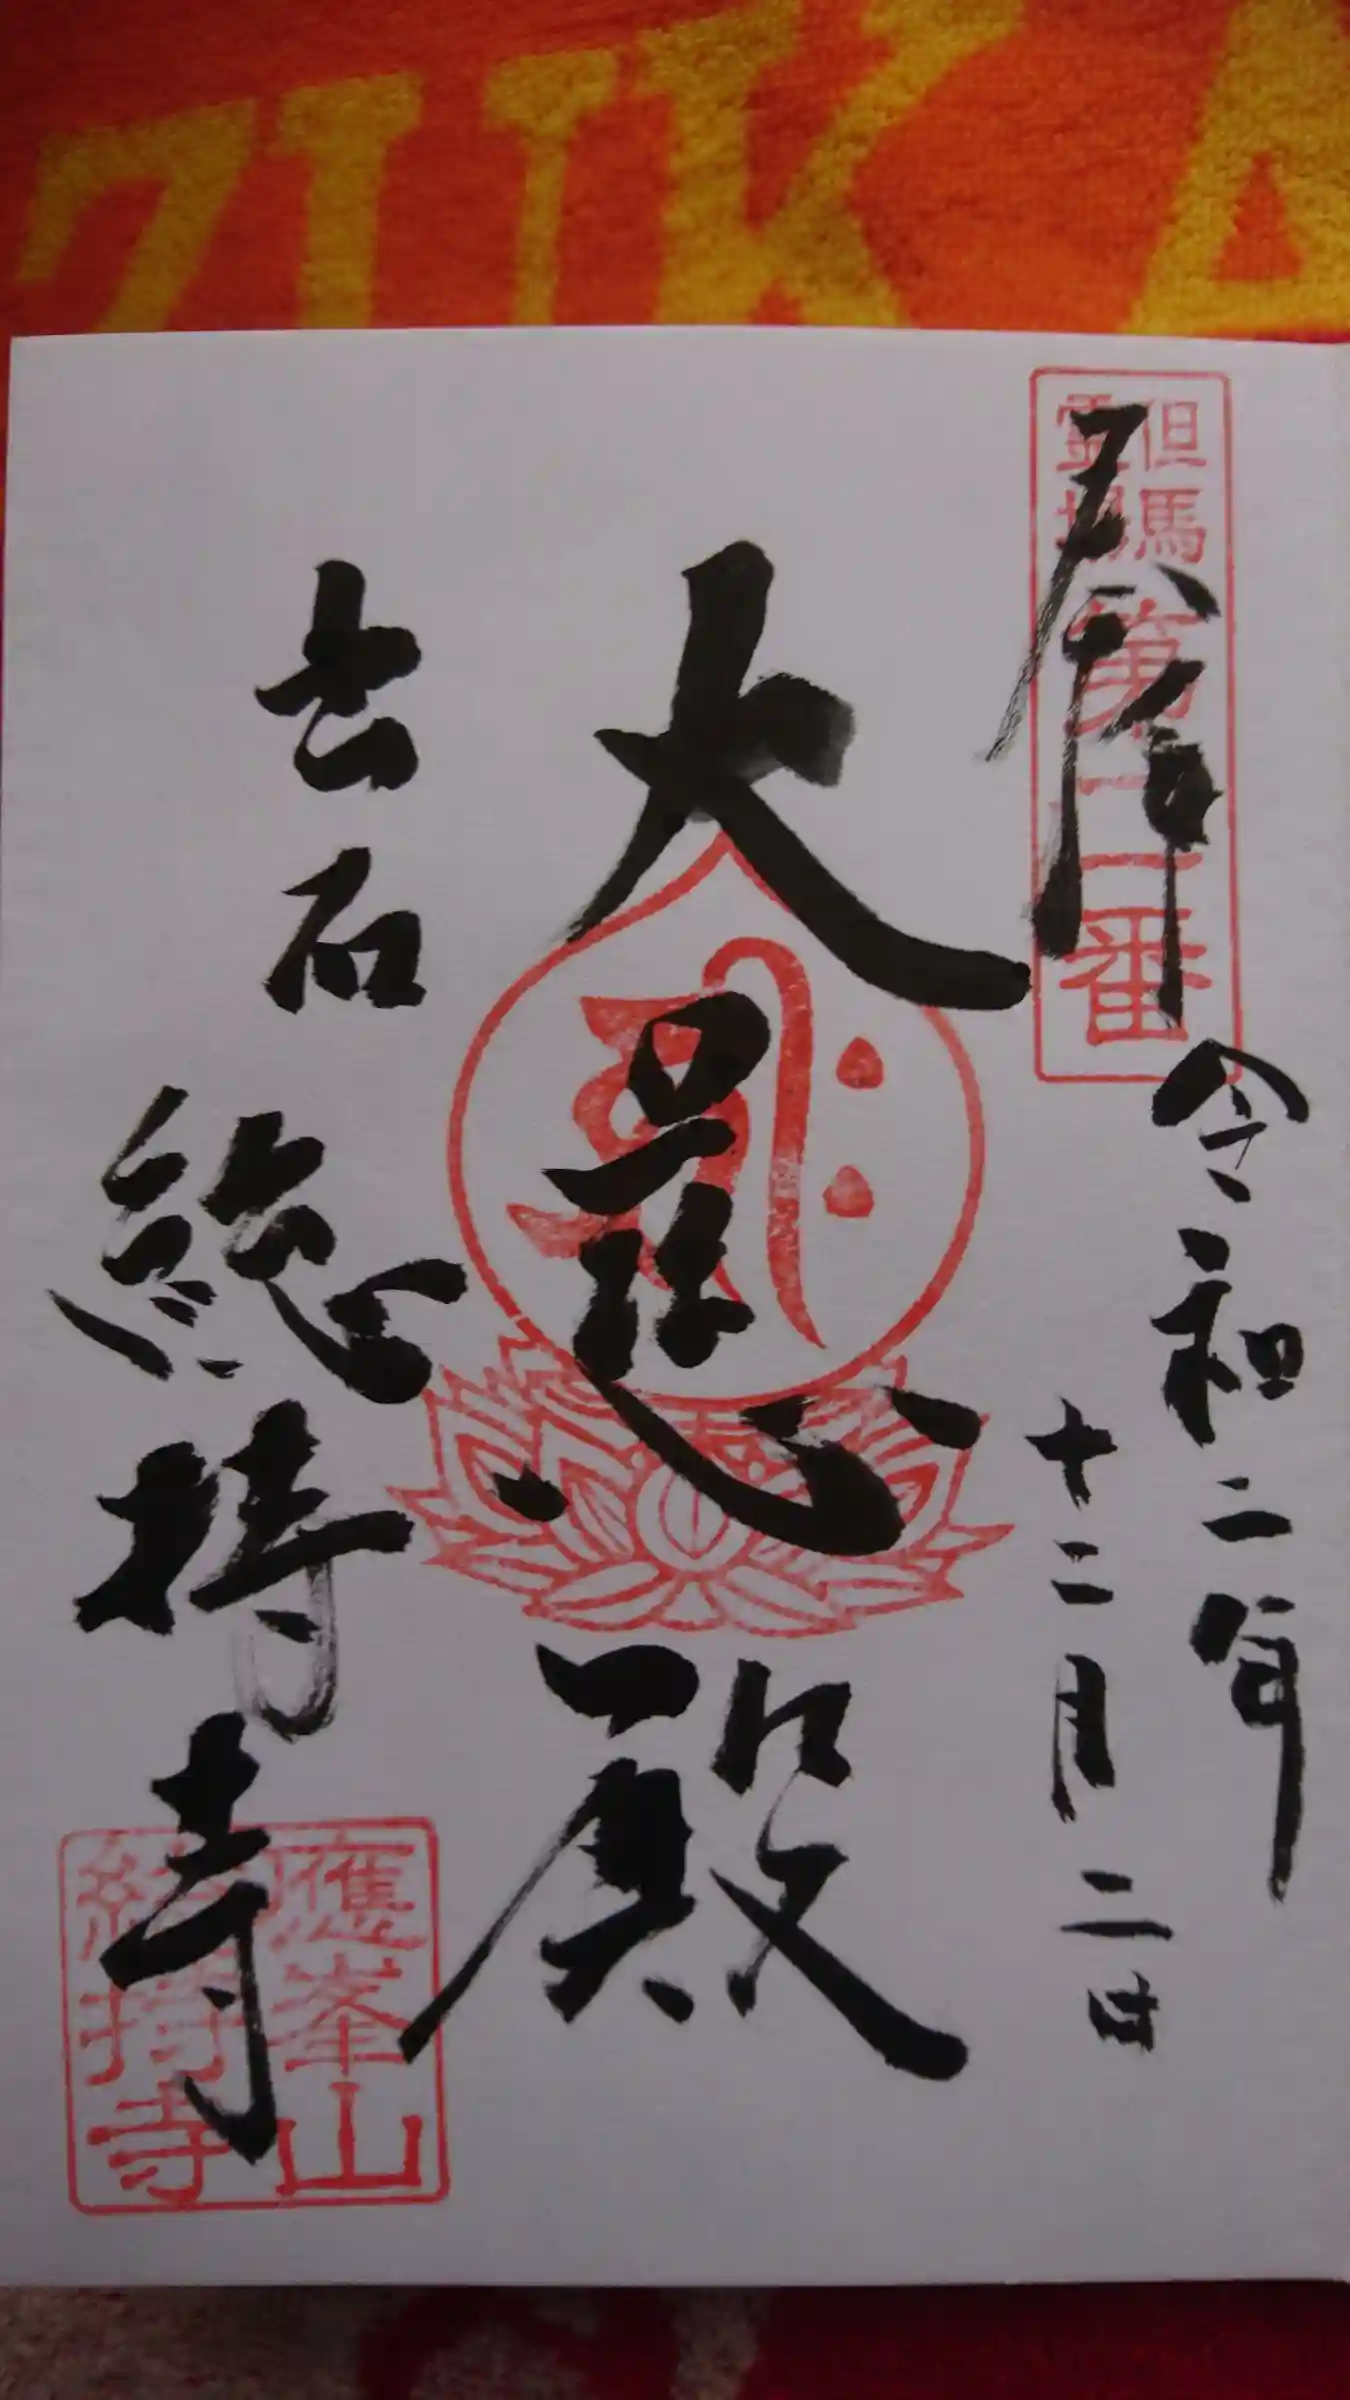 ZUKA
奉拝
但馬
霊場
第二番
令和二年
十二月二日
大慈殿
出石
総持寺
應峯山
総持寺